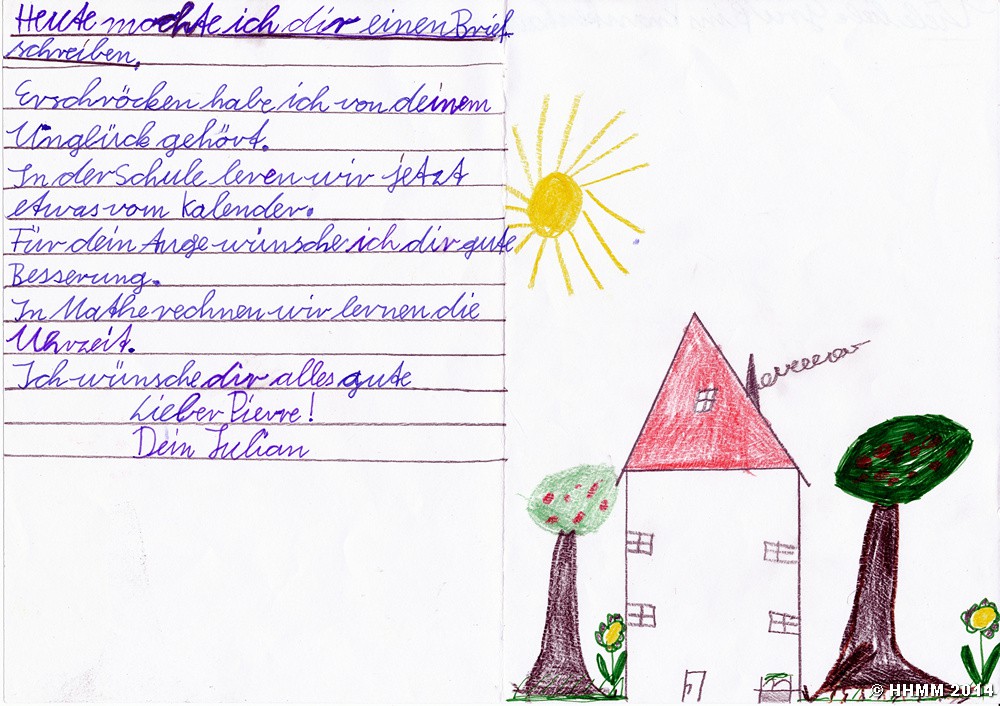 Heute mochte ich dir einen Brief
schreiben,
Erschröcken habe ich von deinem
Unglück gehört.
In der Schule leren wir jetzt
etwas vom Kalender.
Für dein Auge wünsche ich dir gute
Besserung.
In Mathe rechnen wir lernen die
Uhrzeit.
Ich wünsche dir alles gute
Lieber Pierre!
Dein Julian
© HHMM 2014